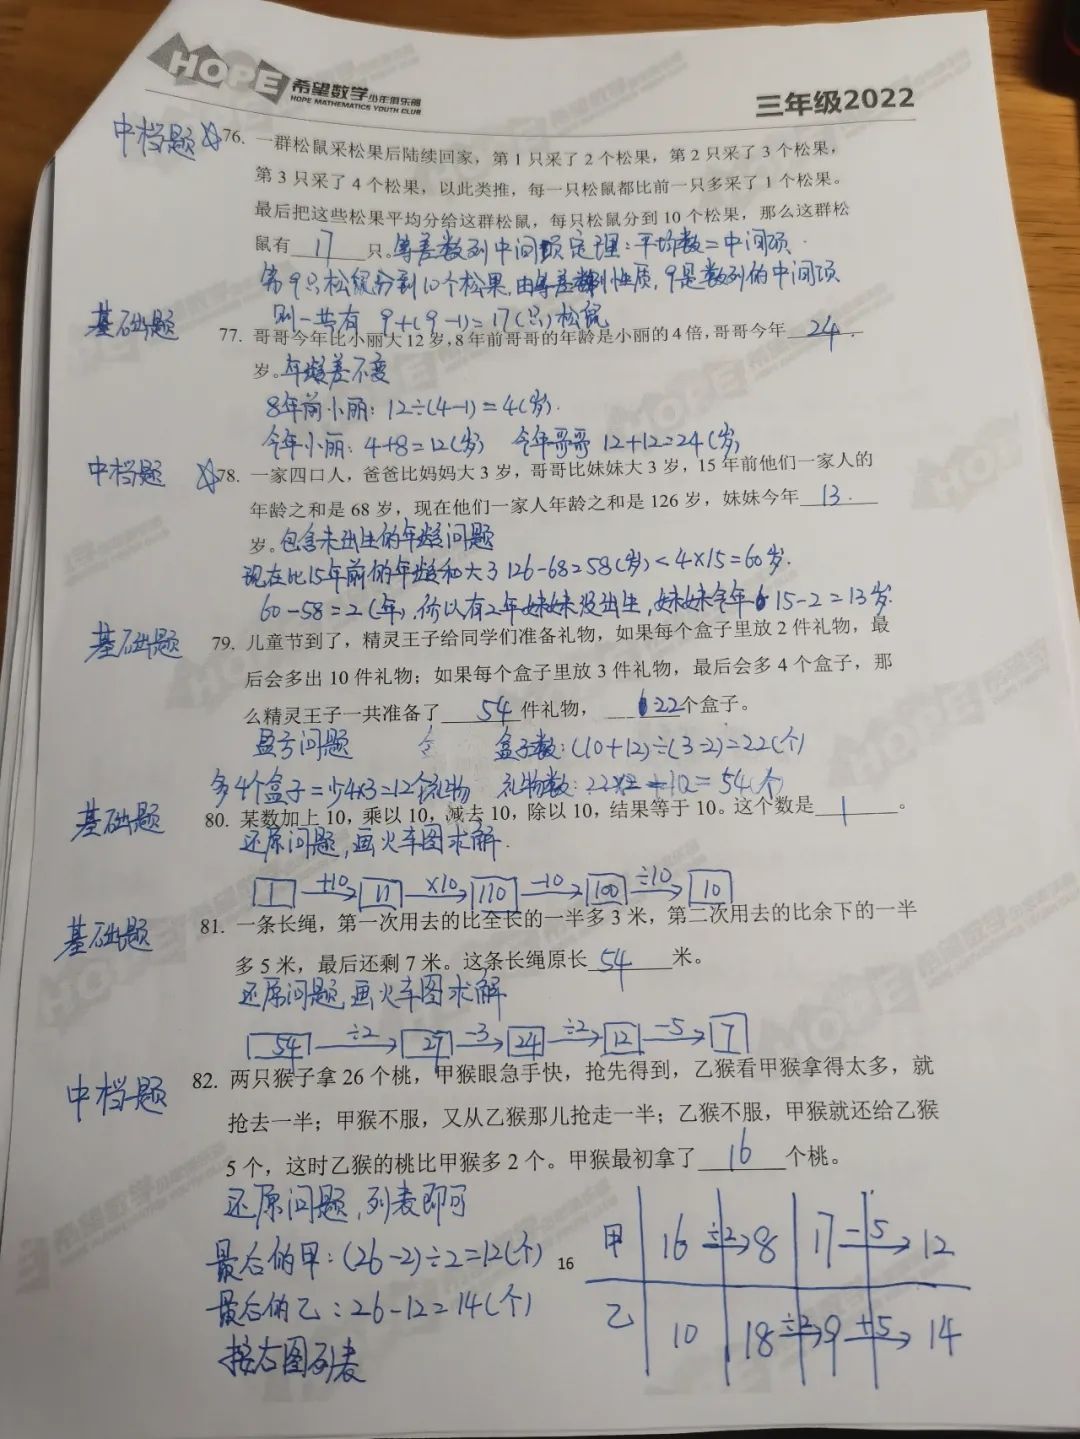 HOPE 希望数学少年俱乐部
HOPE MATHEMATICS YOUTH CLUB
三年级2022
中档题 ☆76. 一群松鼠采松果后陆续回家，第 1 只采了 2 个松果，第 2 只采了 3 个松果，
第 3 只采了 4 个松果，以此类推，每一只松鼠都比前一只多采了 1 个松果。
最后把这些松果平均分给这群松鼠，每只松鼠分到 10 个松果，那么这群松
鼠有 17 只。等差数列中间项定理：平均数=中间项.
第9只松鼠分到10个松果,由等差数列性质,9是数列的中间项
则一共有 9+(9-1)=17(只)松鼠
基础题 77. 哥哥今年比小丽大 12 岁,8 年前哥哥的年龄是小丽的 4 倍,哥哥今年 24.
岁。年龄差不变
8年前小丽：12÷(4-1)=4(岁).
今年小丽：4+8=12(岁) 今年哥哥 12+12=24(岁)
中档题 ☆78. 一家四口人，爸爸比妈妈大 3 岁，哥哥比妹妹大 3 岁，15 年前他们一家人的
年龄之和是 68 岁，现在他们一家人年龄之和是 126 岁，妹妹今年 13.
岁。包含未出生的年龄问题
现在比15年前的年龄和大了126-68=58(岁)<4×15=60岁.
60-58=2(年),所以有2年妹妹没出生,妹妹今年 15-2=13岁.
基础题 79. 儿童节到了，精灵王子给同学们准备礼物，如果每个盒子里放 2 件礼物，最
后会多出 10 件礼物；如果每个盒子里放 3 件礼物，最后会多 4 个盒子，那
么精灵王子一共准备了 54 件礼物， 22 个盒子。
盈亏问题 盒子数：(10+12)÷(3-2)=22(个)
多4个盒子=少4×3=12个礼物 礼物数：22×2+10=54(个)
基础题 80. 某数加上 10，乘以 10，减去 10，除以 10，结果等于 10。这个数是 1 。
还原问题,画火车图求解.
1 +10 11 ×10 110 -10 100 ÷10 10
基础题 81. 一条长绳，第一次用去的比全长的一半多 3 米，第二次用去的比余下的一半
多 5 米，最后还剩 7 米。这条长绳原长 54 米。
还原问题,画火车图求解
54 ÷2 27 -3 24 ÷2 12 -5 7
中档题 82. 两只猴子拿 26 个桃，甲猴眼急手快，抢先得到，乙猴看甲猴拿得太多，就
抢去一半；甲猴不服，又从乙猴那儿抢走一半；乙猴不服，甲猴就还给乙猴
5 个，这时乙猴的桃比甲猴多 2 个。甲猴最初拿了 16 个桃。
还原问题,列表即可
最后的甲：(26-2)÷2=12(个)
最后的乙：26-12=14(个)
按右图列表
甲 16 ÷2 8 17 -5 12
乙 10 18 ÷2 9 +5 14
16